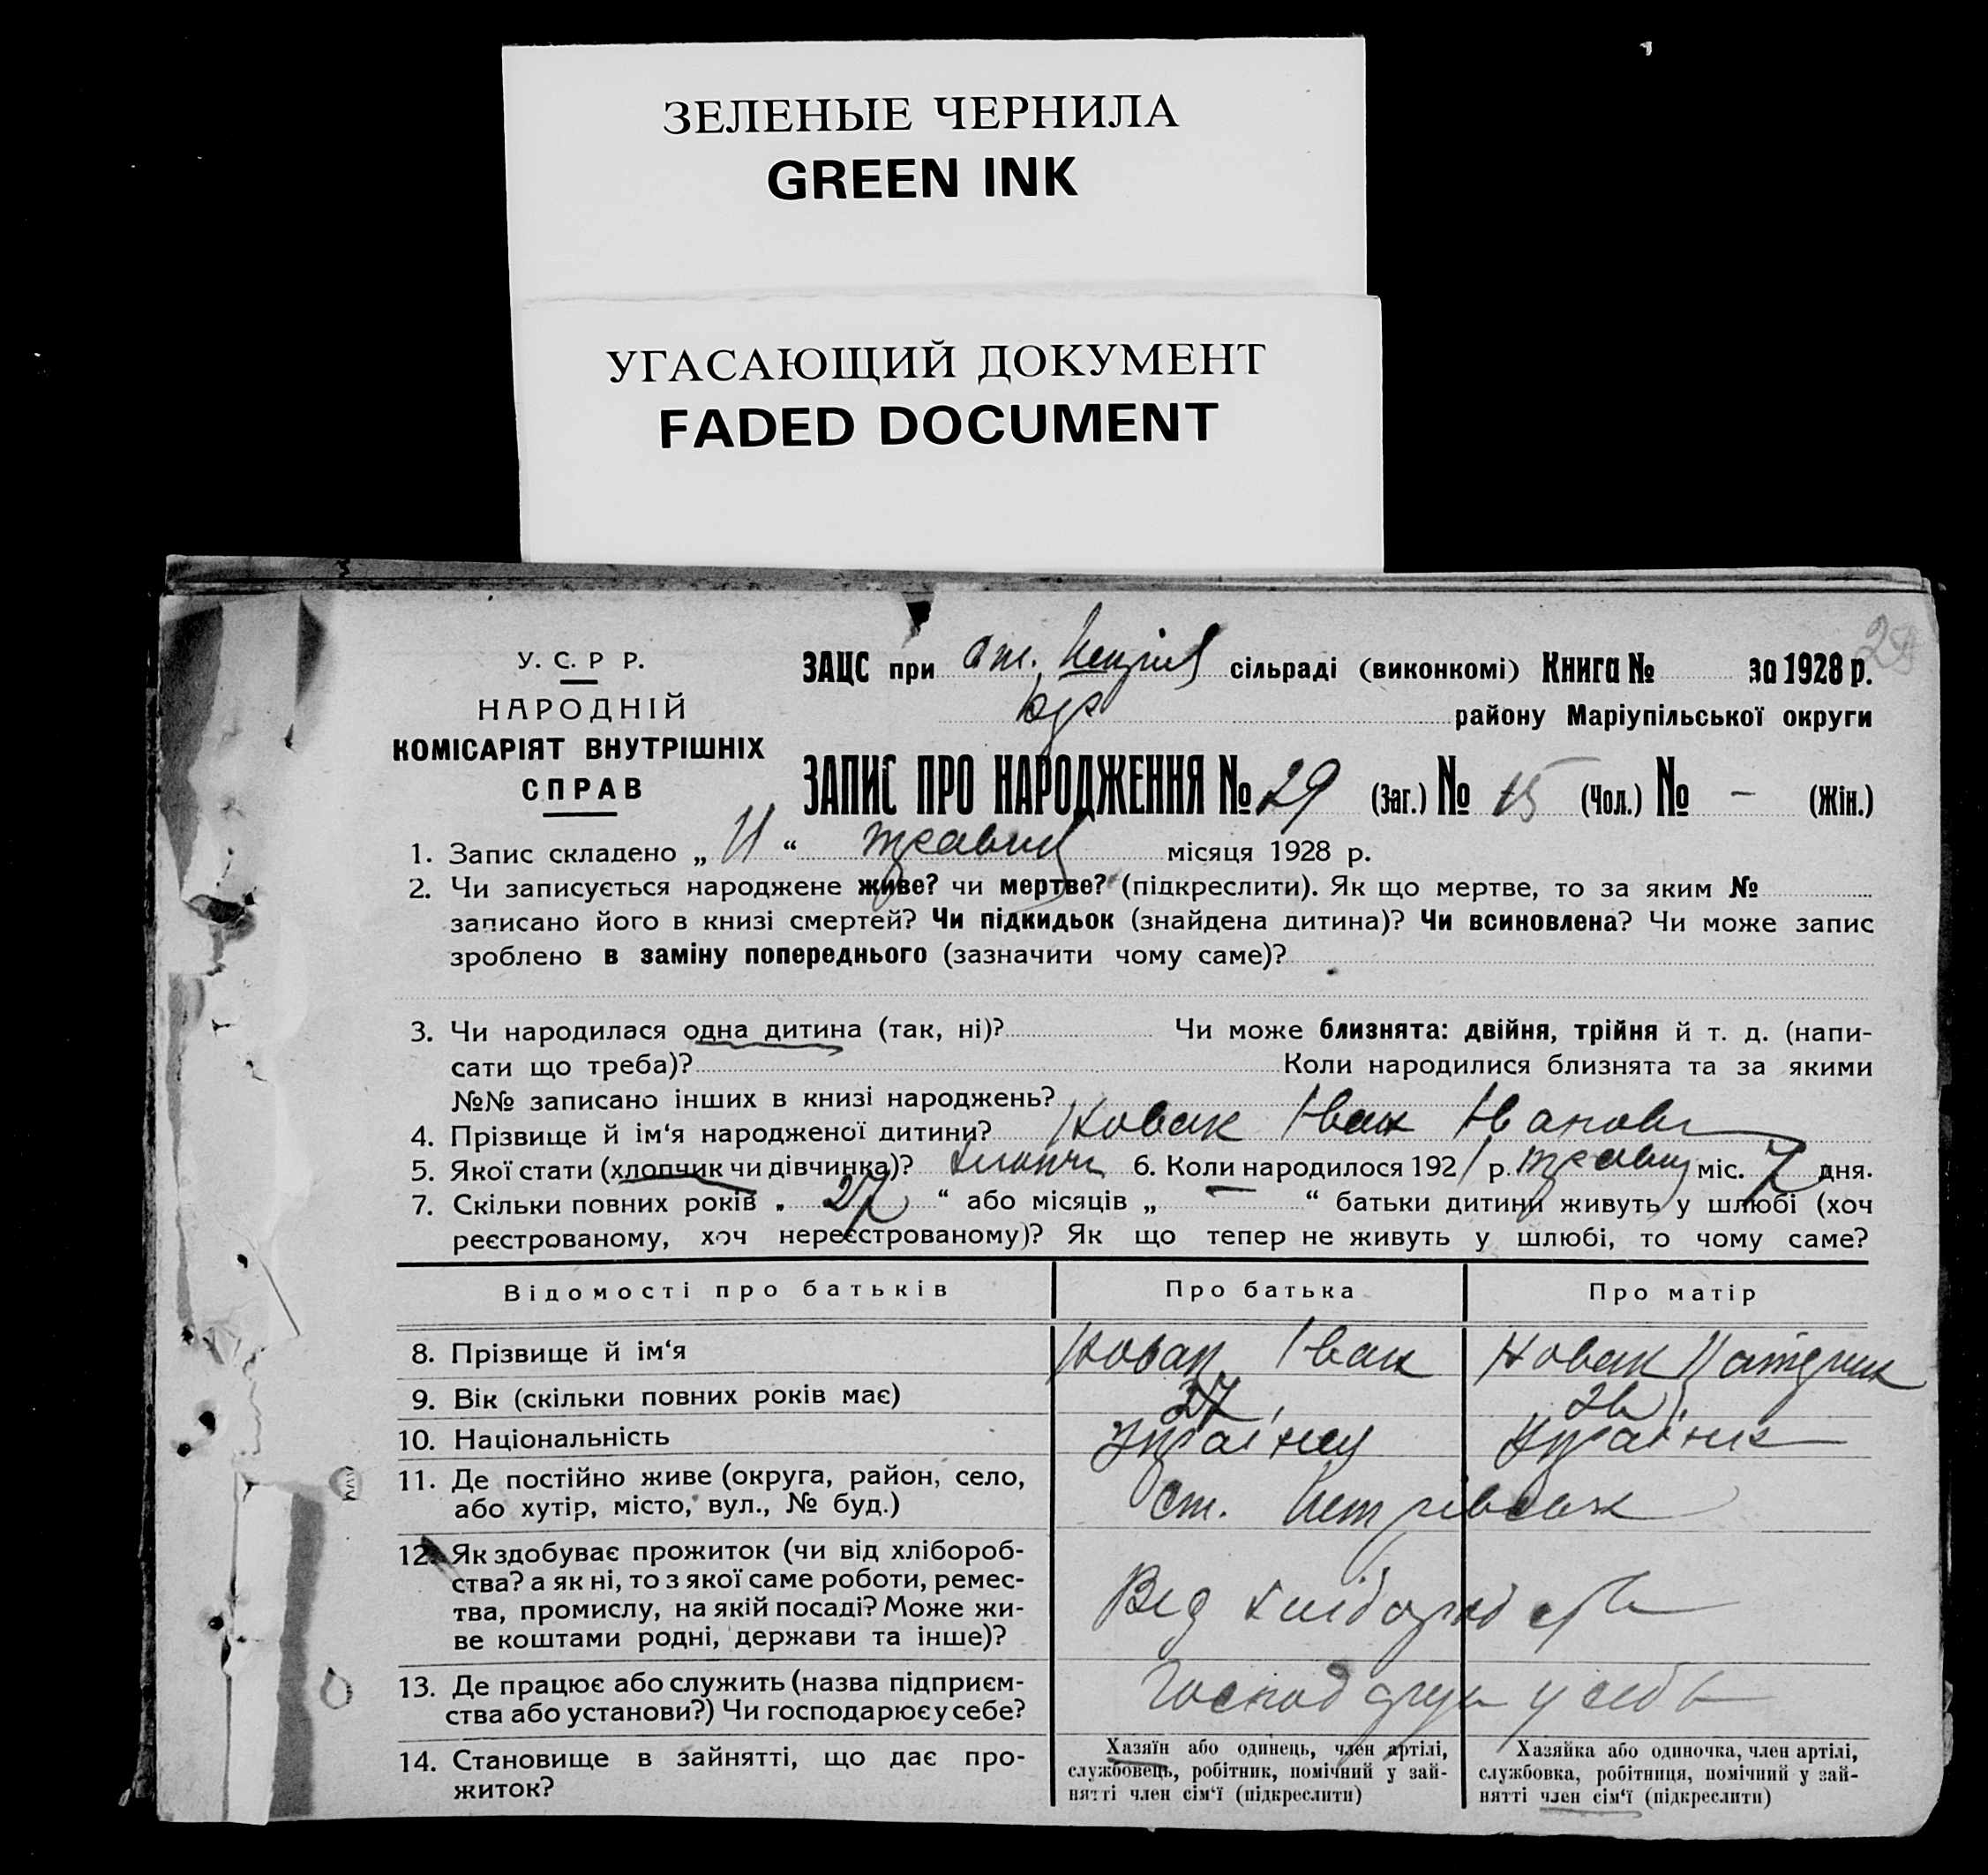 ЗЕЛЕНЫЕ ЧЕРНИЛА
GREEN INK
УГАСАЮЩИЙ ДОКУМЕНТ
FADED DOCUMENT
У. С. Р Р.
НАРОДНІЙ
КОМІСАРІЯТ ВНУТРІШНІХ
СПРАВ
ЗАЦС при ст. сільраді (виконкомі) Книга № за 1928 р.
району Маріупільської округи
ЗАПИС ПРО НАРОДЖЕННЯ № 29 (Заг.) № 15 (Чол.) № - (Жін.)
1. Запис складено „ 11 “ травня місяця 1928 р.
2. Чи записується народжене живе? чи мертве? (підкреслити). Як що мертве, то за яким №
записано його в книзі смертей? Чи підкидьок (знайдена дитина)? Чи всиновлена? Чи може запис
зроблено в заміну попереднього (зазначити чому саме)?
3. Чи народилася одна дитина (так, ні)? Чи може близнята: двійня, трійня й т. д. (напи-
сати що треба)? Коли народилися близнята та за якими
№№ записано інших в книзі народжень?
4. Прізвище й ім‘я народженої дитини? Новак Іван Іванов
5. Якої стати (хлопчик чи дівчинка)? хлопч 6. Коли народилося 192 р. травня міс. 7 дня.
7. Скільки повних років „ 2р “ або місяців „ — “ батьки дитини живуть у шлюбі (хоч
реєстрованому, хоч нереєстрованому)? Як що тепер не живуть у шлюбі, то чому саме?
Відомості про батьків Про батька Про матір
8. Прізвище й ім‘я Новак Іван Новак
9. Вік (скільки повних років має) 27
10. Національність Україн Україн
11. Де постійно живе (округа, район, село,
або хутір, місто, вул., № буд.) ст. Петрівськ
12. Як здобуває прожиток (чи від хлібороб-
ства? а як ні, то з якої саме роботи, ремес-
тва, промислу, на якій посаді? Може жи-
ве коштами родні, держави та інше)? Від хліборобства
13. Де працює або служить (назва підприєм-
ства або установи?) Чи господарює у себе? Господарує у себе
14. Становище в зайнятті, що дає про-
житок?
Хазяїн або одинець, член артілі,
службовець, робітник, помічний у зай-
нятті член сім‘ї (підкреслити)
Хазяйка або одиночка, член артілі,
службовка, робітниця, помічний у зай-
нятті член сім‘ї (підкреслити)